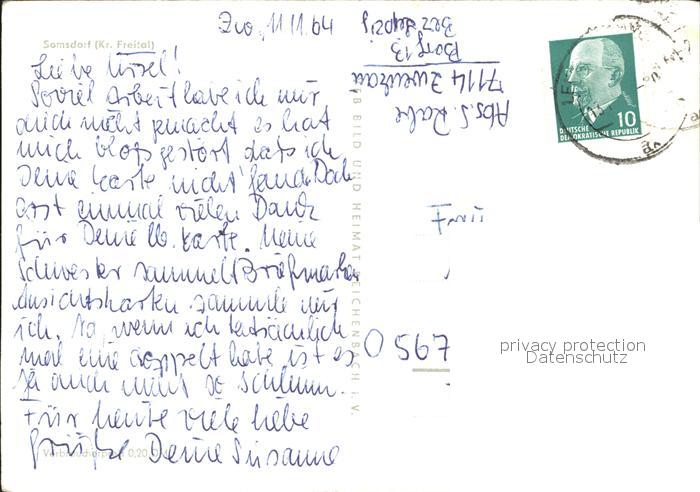 Zw., 11.11.64
Somsdorf (Kr. Freital)
Liebe Ursel!
Soviel Arbeit habe ich mir
auch nicht gemacht es hat
mich blos gestört dass ich
Deine Karte nicht fand. Doch
erst einmal vielen Dank
für Deine lb. Karte. Meine
Schwester sammelt Briefmarken
Ansichtskarten sammle nur
ich. Na, wenn ich tatsächlich
mal eine doppelt habe ist es
ja auch nicht so schlimm.
Für heute viele liebe
Grüße Deine Susanne
Verbraucherpreis 0,20 DM
VEB BILD UND HEIMAT REICHENBACH i. V.
Abs. S. Rabe
7114 Zwenkau
Borg 13
Bez Leipzig
10
DEUTSCHE
DEMOKRATISCHE REPUBLIK
Frau
O 567
privacy protection
Datenschutz